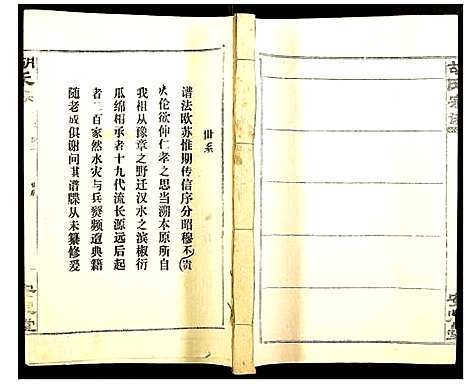 胡氏宗譜
安定堂
世系
谱法欧苏惟期传信序分昭穆不贵
伦欲伸仁孝之思当溯本原所自
我祖从豫章之野迁汉水之滨椒衍
瓜绵相承者十九代流长源远后起
者二百家然水灾与兵燹频遭典籍
随老成俱谢问其谱牒从未纂修爰
世系